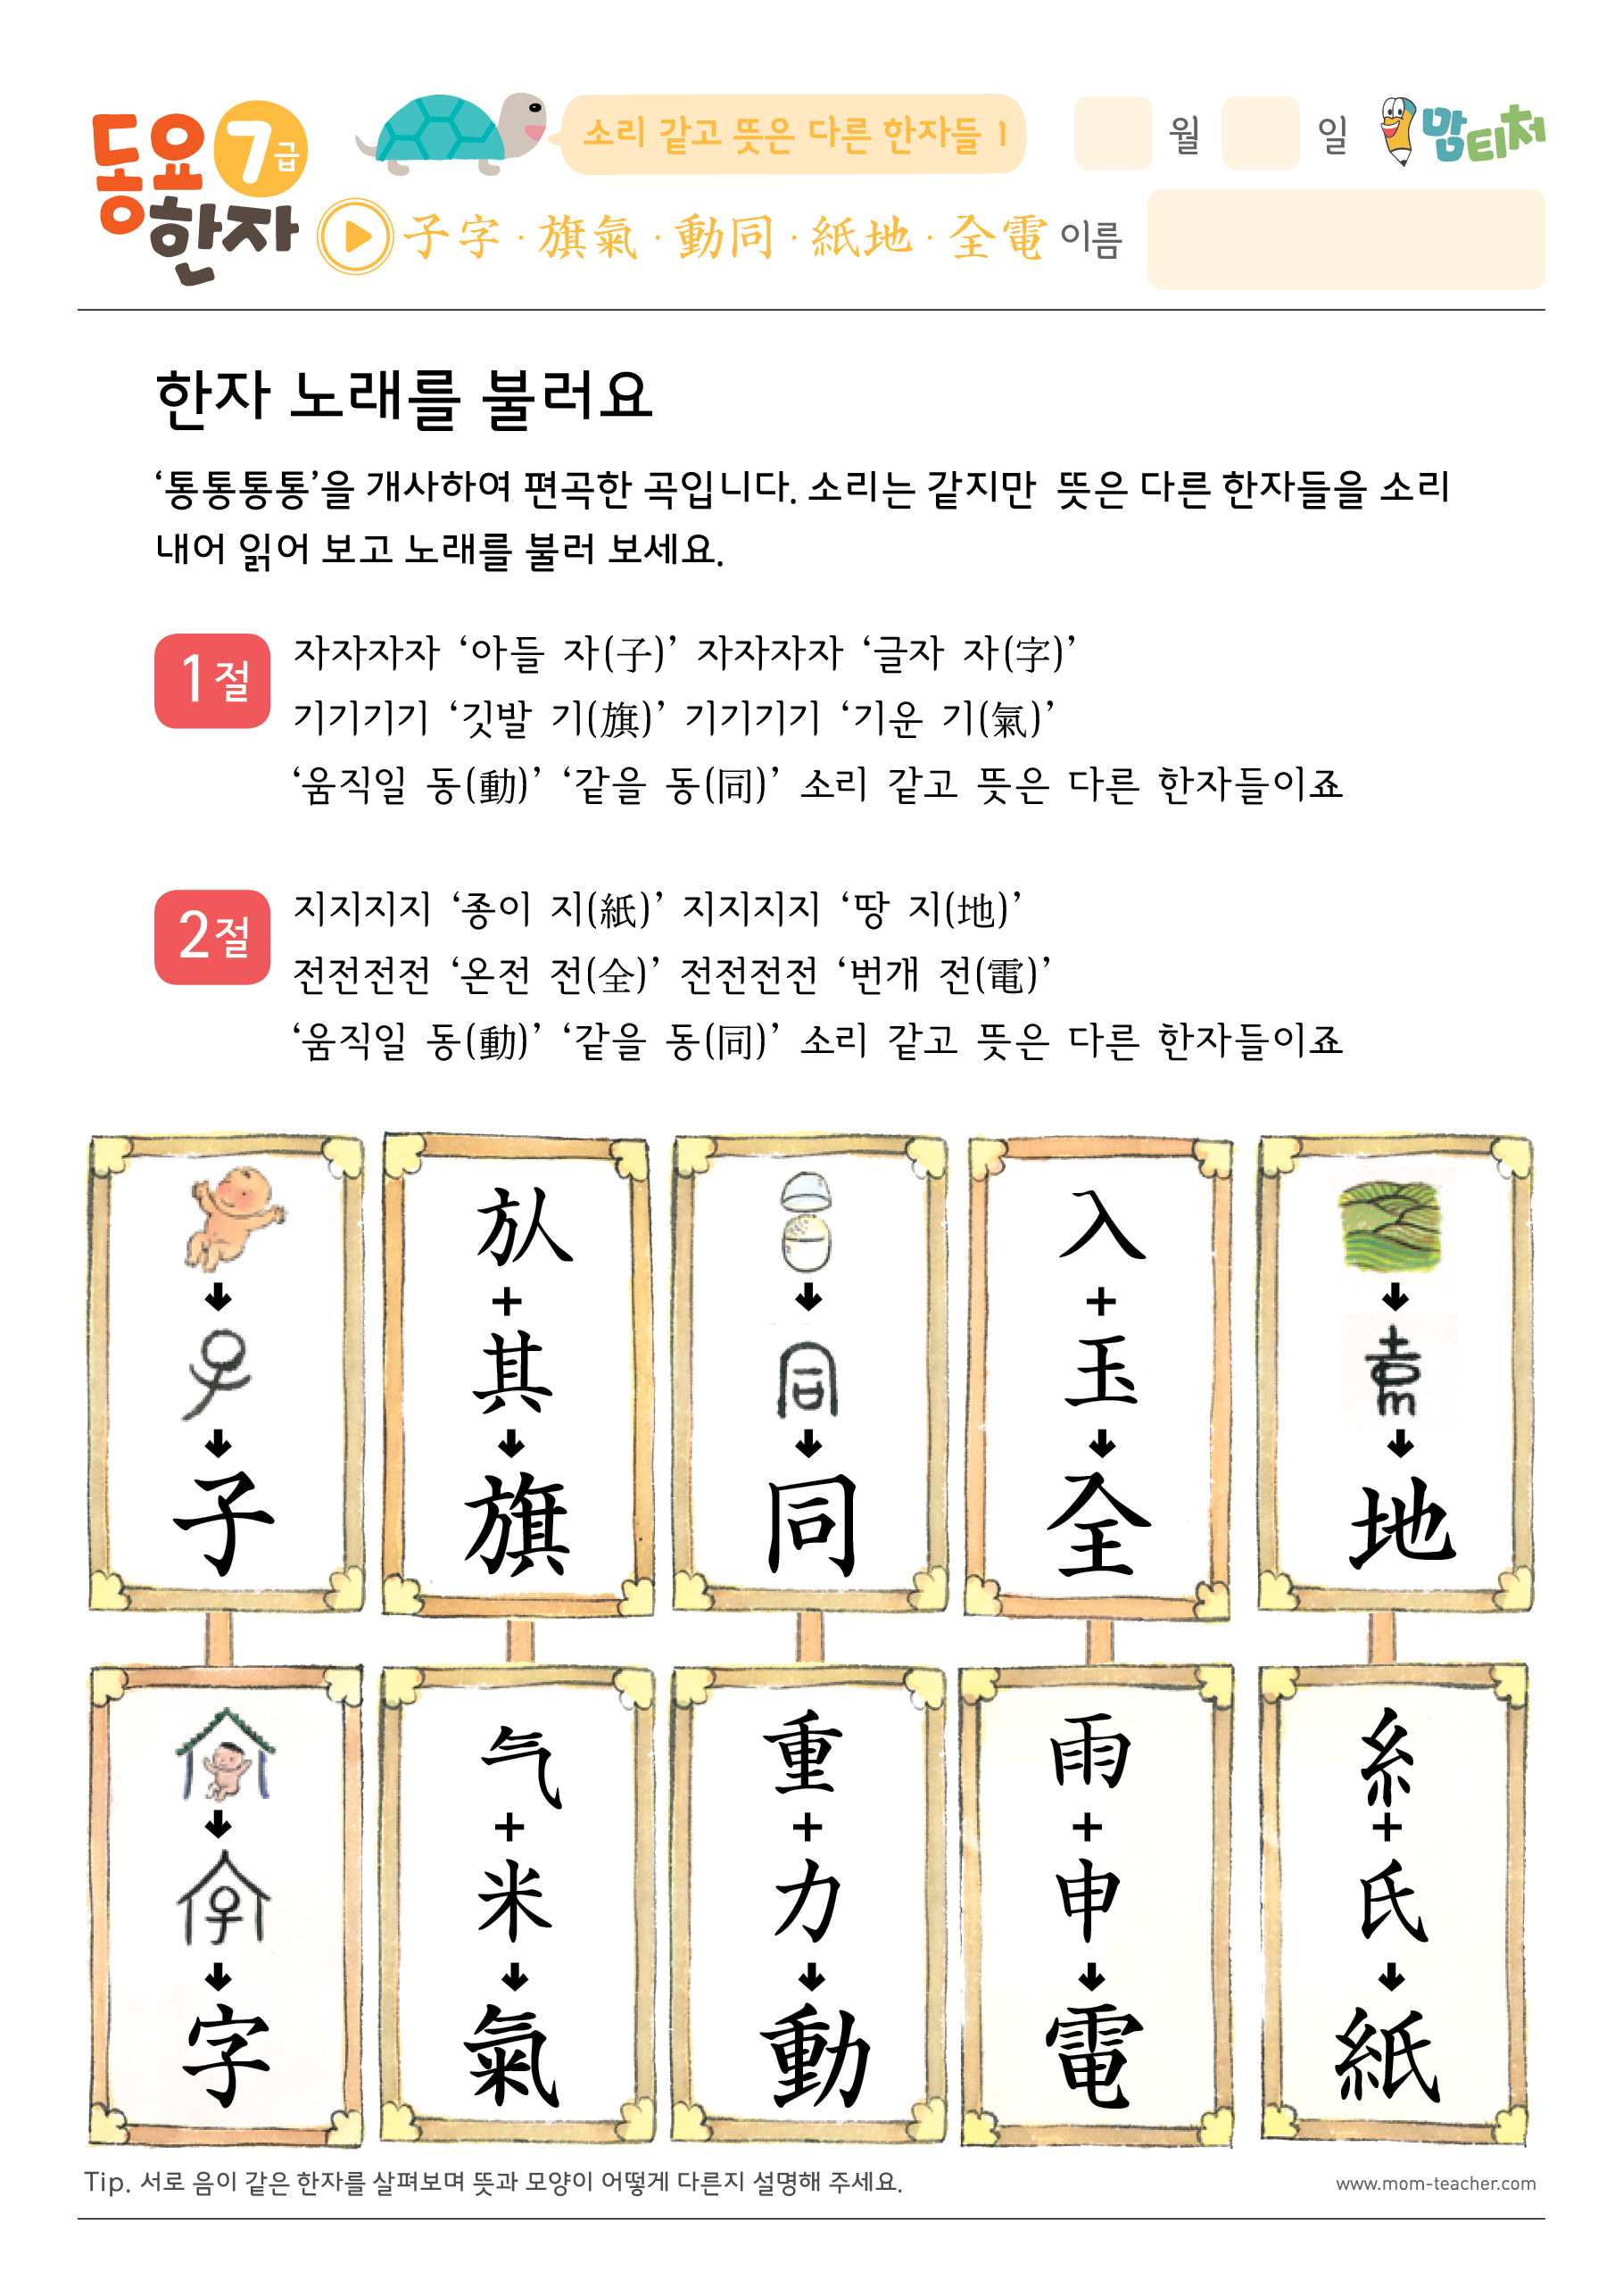 동요 한자 7급
소리 같고 뜻은 다른 한자들 1
월 일
맘티처
子字 · 旗氣 · 動同 · 紙地 · 全電
이름
한자 노래를 불러요
‘통통통통’을 개사하여 편곡한 곡입니다. 소리는 같지만 뜻은 다른 한자들을 소리
내어 읽어 보고 노래를 불러 보세요.
1절
자자자자 ‘아들 자(子)’ 자자자자 ‘글자 자(字)’
기기기기 ‘깃발 기(旗)’ 기기기기 ‘기운 기(氣)’
‘움직일 동(動)’ ‘같을 동(同)’ 소리 같고 뜻은 다른 한자들이죠
2절
지지지지 ‘종이 지(紙)’ 지지지지 ‘땅 지(地)’
전전전전 ‘온전 전(全)’ 전전전전 ‘번개 전(電)’
‘움직일 동(動)’ ‘같을 동(同)’ 소리 같고 뜻은 다른 한자들이죠
子
㫃
+
其
旗
同
入
+
玉
全
地
字
气
+
米
氣
重
+
力
動
雨
+
申
電
糸
+
氏
紙
Tip. 서로 음이 같은 한자를 살펴보며 뜻과 모양이 어떻게 다른지 설명해 주세요.
www.mom-teacher.com